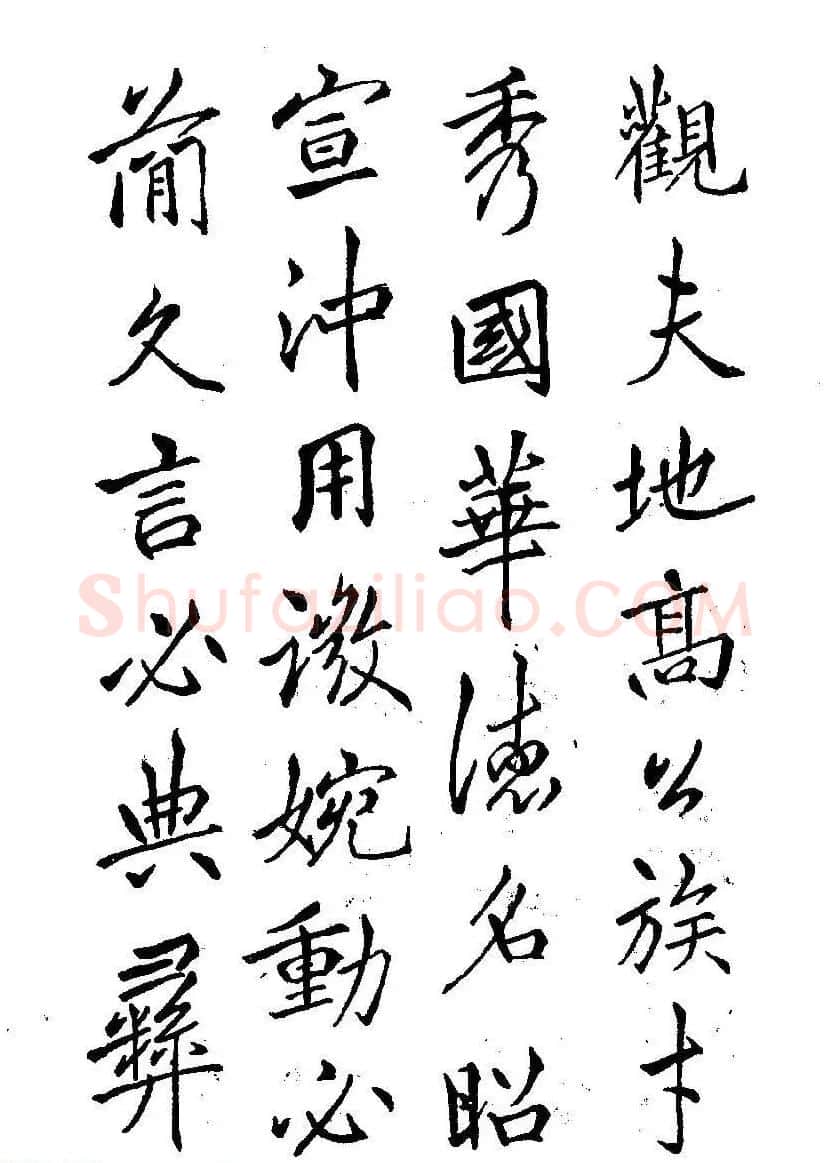 觀夫地高公族才
秀國華德名昭
宣沖用微婉動必
簡久言必典彝
Shufaziliao.COM